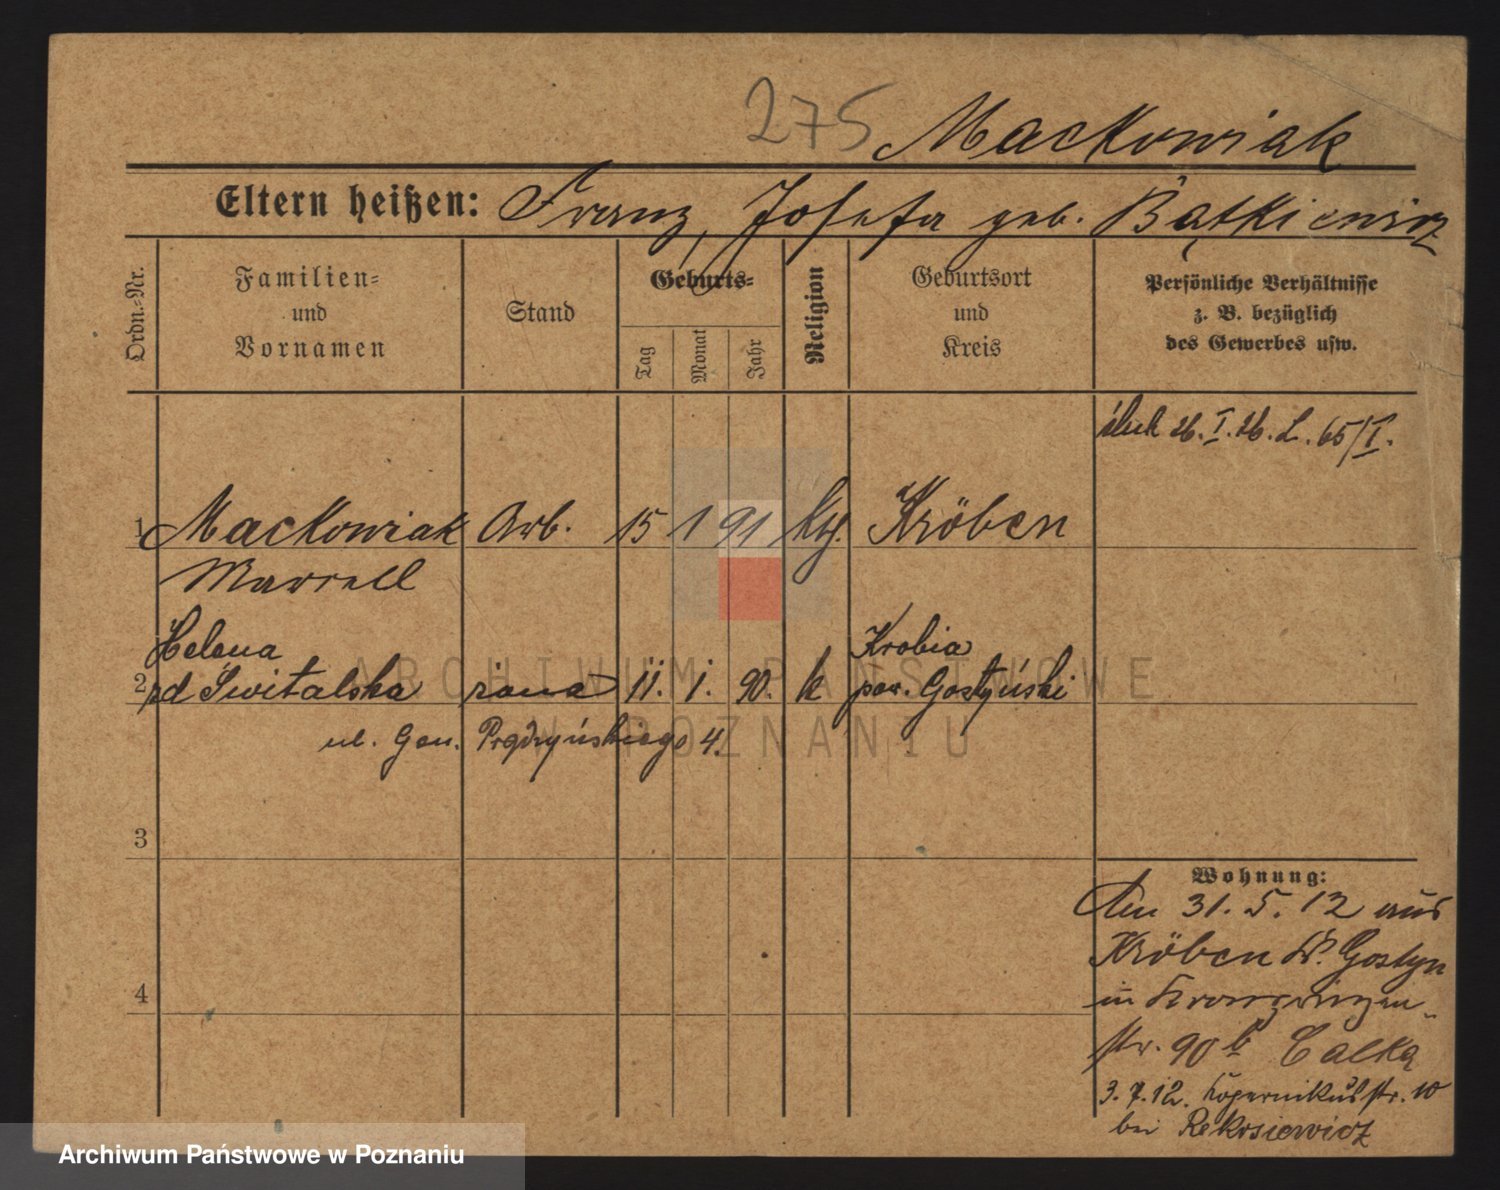 275 Mackowiak
Eltern heißen: Franz, Josefa geb. Bątkiewicz
Ordn.=Nr.
Familien=
und
Vornamen
Stand
Geburts=
Tag
Monat
Jahr
Religion
Geburtsort
und
Kreis
Persönliche Verhältnisse
z. B. bezüglich
des Gewerbes usw.
26. I. 26. L. 65/I.
1 Mackowiak Arb. 15 1 91 Kröben
Marzell
Helena Krobia
2 zd Świtalska żona 11. 1. 90. k pow. Gostyński
ul. Gen. Prądzyńskiego 4.
3
4
Wohnung:
Am 31. 5. 12 aus
Kröben Kr. Gostyn
in Kronprinzen-
str. 90 b Calka
3. 7. 12. Kopernikusstr. 10
bei Rekosiewicz
ARCHIWUM PAŃSTWOWE
W POZNANIU
Archiwum Państwowe w Poznaniu